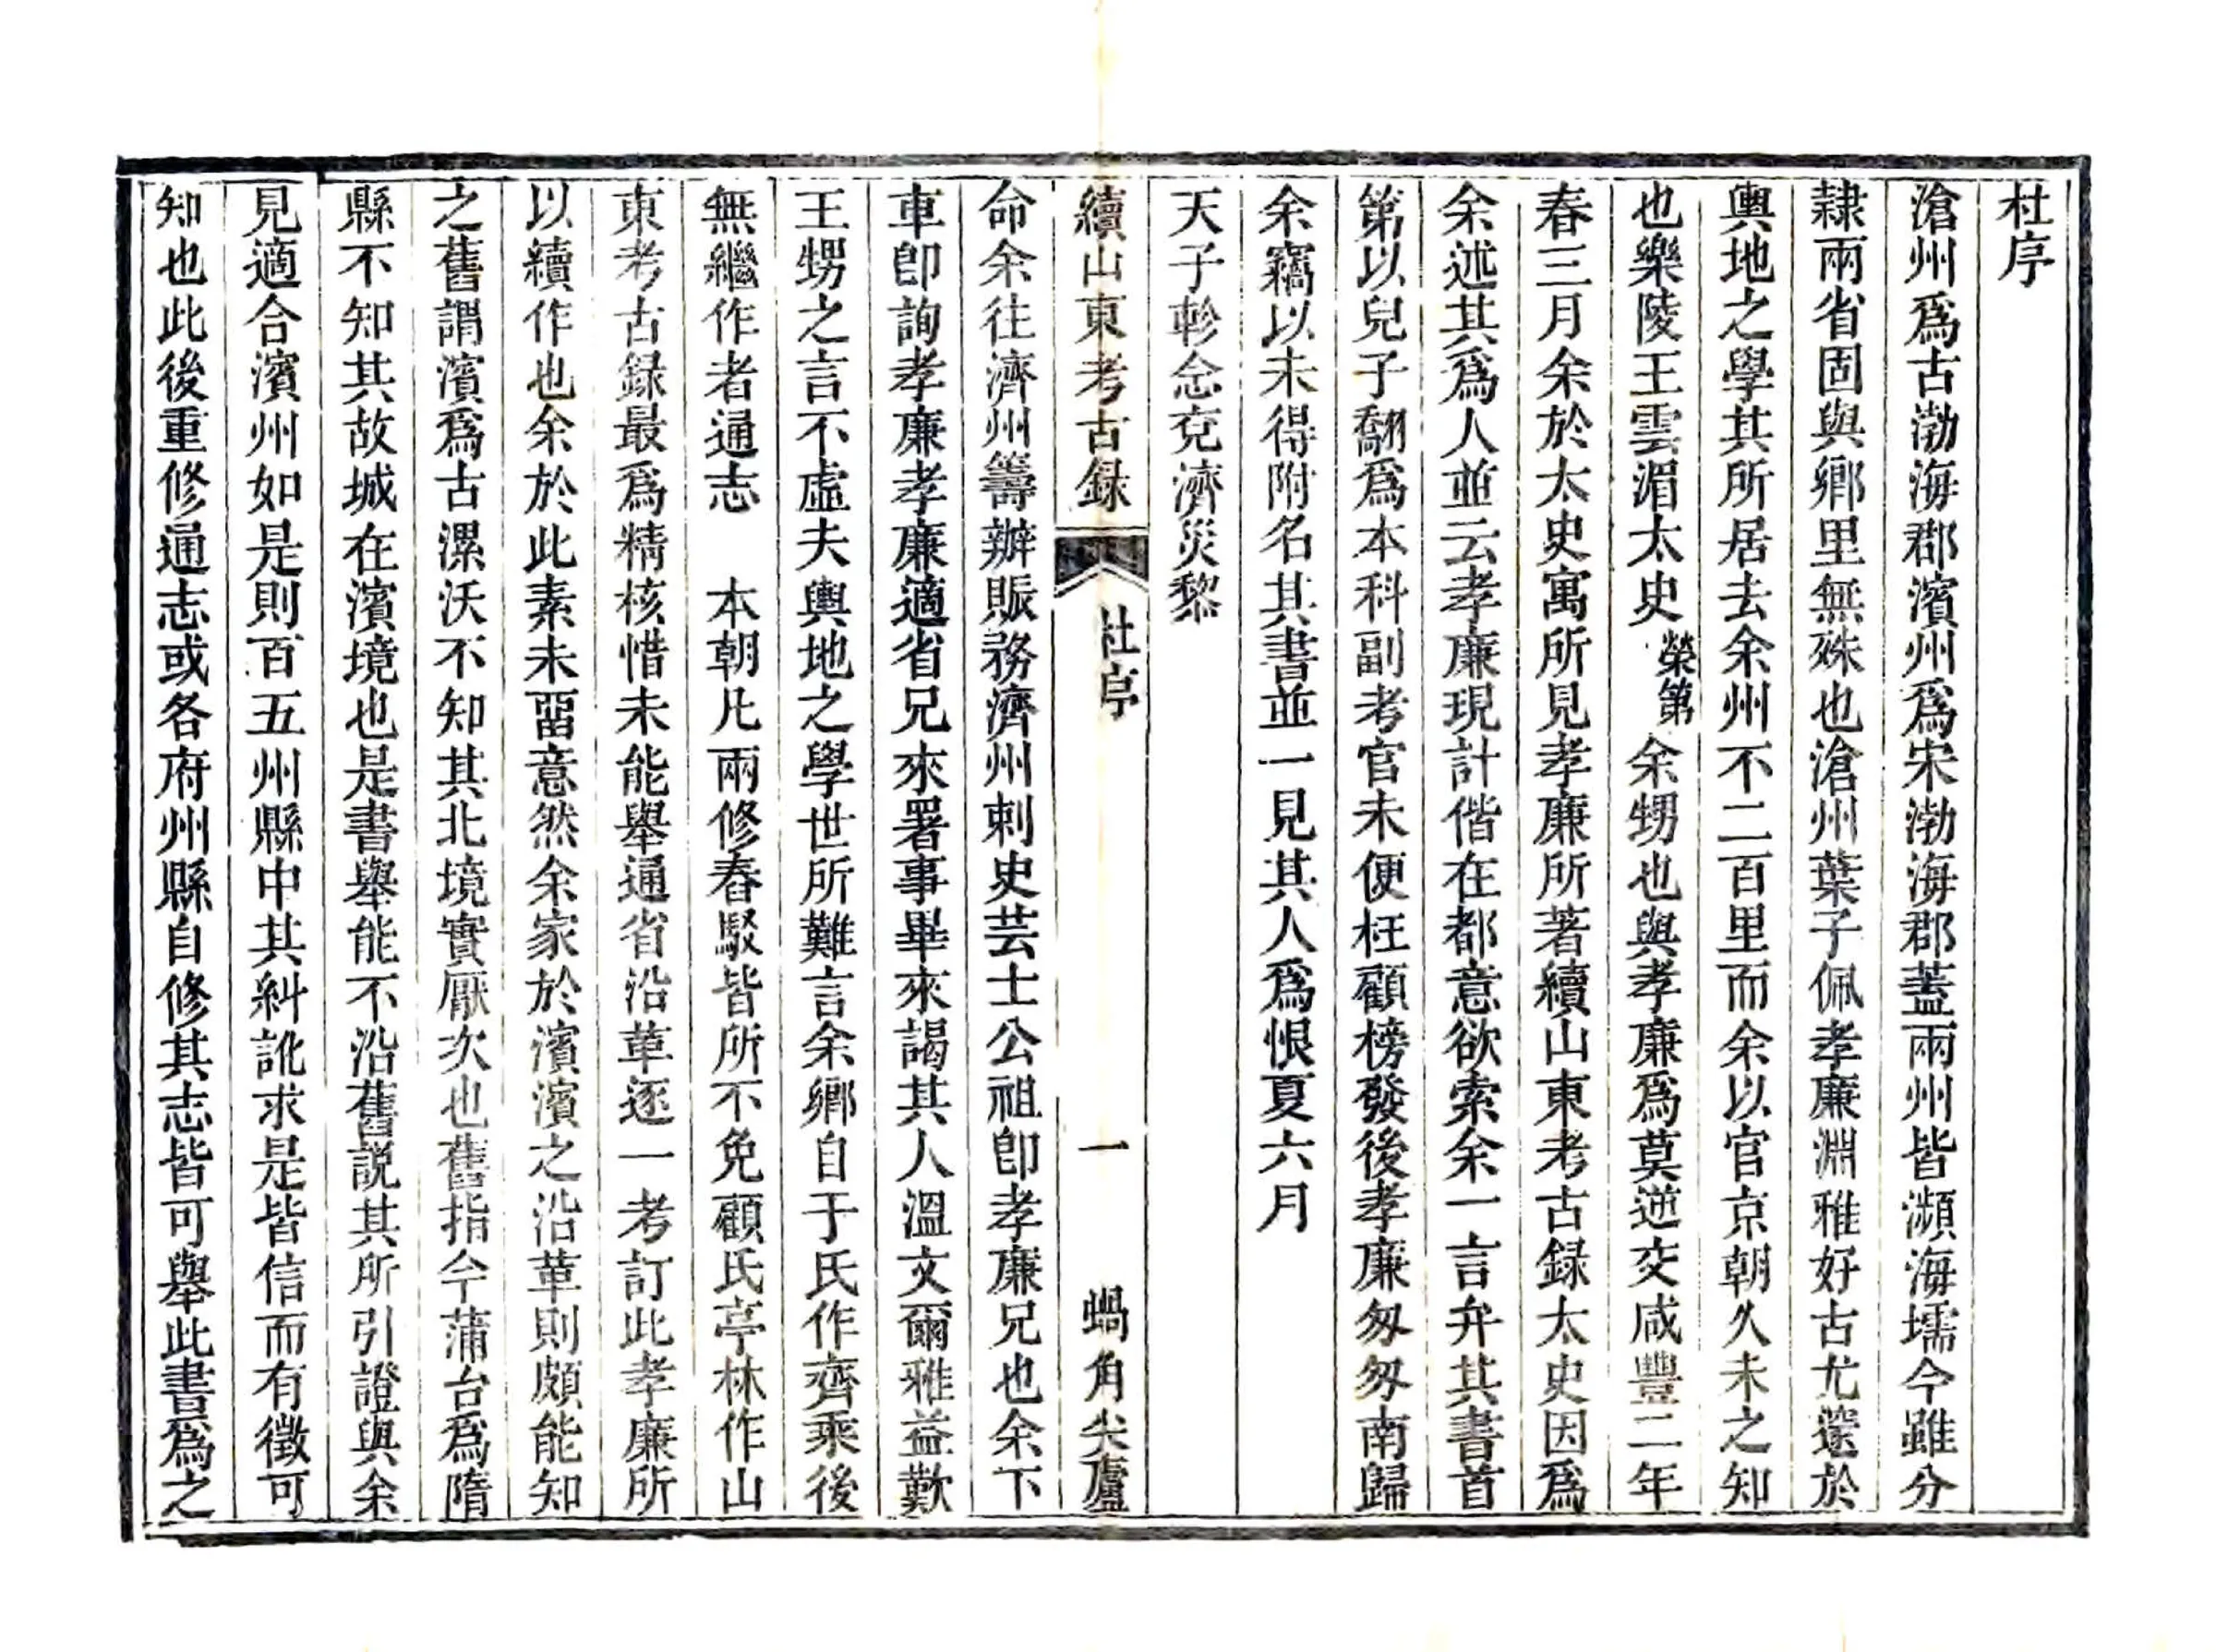 杜序
滄州爲古渤海郡濱州爲宋渤海郡蓋兩州皆瀕海壖今雖分
隸兩省固與鄉里無殊也滄州葉子佩孝廉淵雅好古尤邃於
輿地之學其所居去余州不二百里而余以官京朝久未之知
也樂陵王雲湄太史榮第余甥也與孝廉爲莫逆交咸豐二年
春三月余於太史寓所見孝廉所著續山東考古録太史因爲
余述其爲人並云孝廉現計偕在都意欲索余一言弁其書首
第以兒子翮爲本科副考官未便枉顧榜發後孝廉匆匆南歸
余竊以未得附名其書並一見其人爲恨夏六月
天子軫念兗濟災黎
續山東考古録 杜序 一 蝸角尖廬
命余往濟州籌辦賑務濟州刺史芸士公祖卽孝廉兄也余下
車卽詢孝廉孝廉適省兄來署事畢來謁其人溫文爾雅益歎
王甥之言不虛夫輿地之學世所難言余鄉自于氏作齊乘後
無繼作者通志 本朝凡兩修舂駁皆所不免顧氏亭林作山
東考古録最爲精核惜未能舉通省沿革逐一考訂此孝廉所
以續作也余於此素未畱意然余家於濱濱之沿革則頗能知
之舊謂濱爲古漯沃不知其北境實厭次也舊指今蒲台爲隋
縣不知其故城在濱境也是書舉能不沿舊説其所引證與余
見適合濱州如是則百五州縣中其糾訛求是皆信而有徵可
知也此後重修通志或各府州縣自修其志皆可舉此書爲之